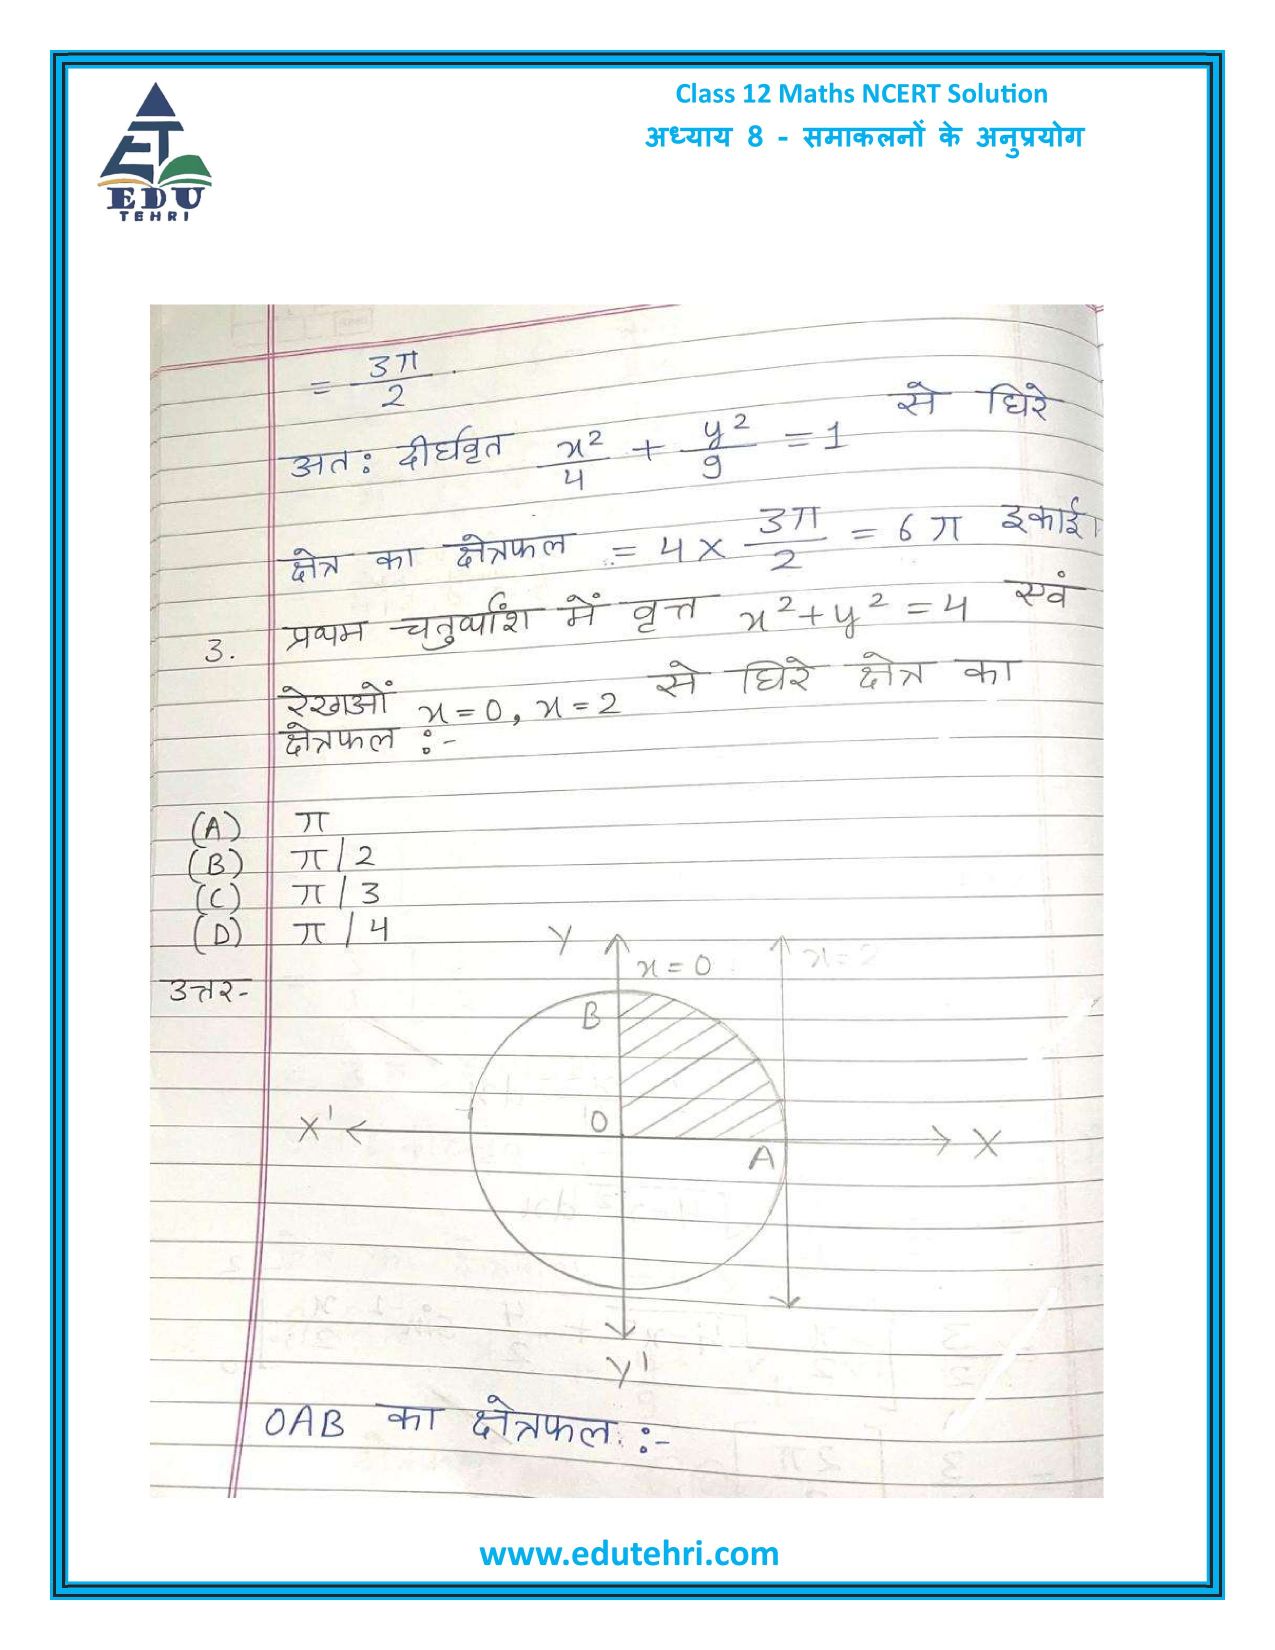 Class 12 Maths NCERT Solution
अध्याय 8 - समाकलनों के अनुप्रयोग
EDU
TEHRI
= 3π/2.
अतः दीर्घवृत x²/4 + y²/9 = 1 से घिरे
क्षेत्र का क्षेत्रफल = 4 × 3π/2 = 6π इकाई।
3. प्रथम चतुर्थांश में वृत्त x² + y² = 4 एवं
रेखाओं x = 0, x = 2 से घिरे क्षेत्र का
क्षेत्रफल :-
(A) π
(B) π/2
(C) π/3
(D) π/4
उत्तर-
Y
x = 0
x = 2
B
O
X'
A
X
Y'
OAB का क्षेत्रफल :-
www.edutehri.com